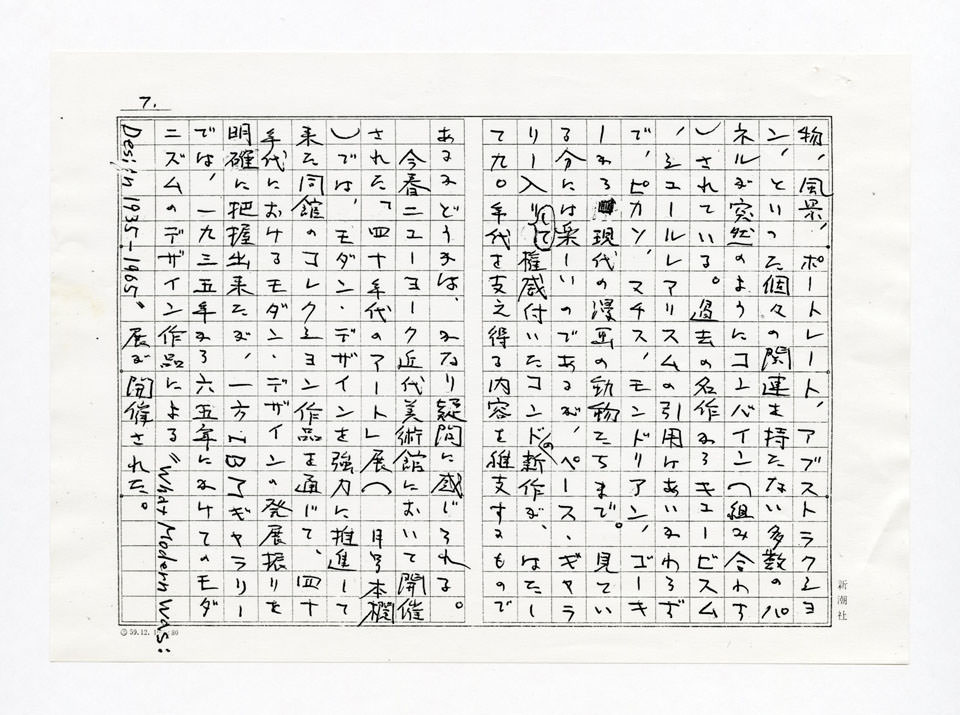 7.
物、風景、ポートレート、アブストラクショ
ン、といった個々の関連を持たない多数のパ
ネルが突然のようにコンバイン（組み合わす
）されている。過去の名作からキュービズム
、シュールレアリスムの引用はあいかわらず
で、ピカソ、マチス、モンドリアン、ゴーキ
ーから現代の漫画の動物たちまで。見てい
る分には楽しいのであるが、ペース・ギャラ
リー入りして権威付いたコンドの新作が、はたし
て九〇年代を支え得る内容を維支するもので
あるかどうかは、かなり疑問に感じられる。
今春ニューヨーク近代美術館において開催
された「四十年代のアート」展（　月号本欄
）では、モダン・デザインを強力に推進して
来た同館のコレクション作品を通じて、四十
年代におけるモダン・デザインの発展振りを
明確に把握出来たが、一方、I・Bアギャラリー
では、一九三五年から六五年にかけてのモダ
ニズムのデザイン作品による“What Modern Was:
Design 1935-1965”展が開催された。
新潮社
59.12.